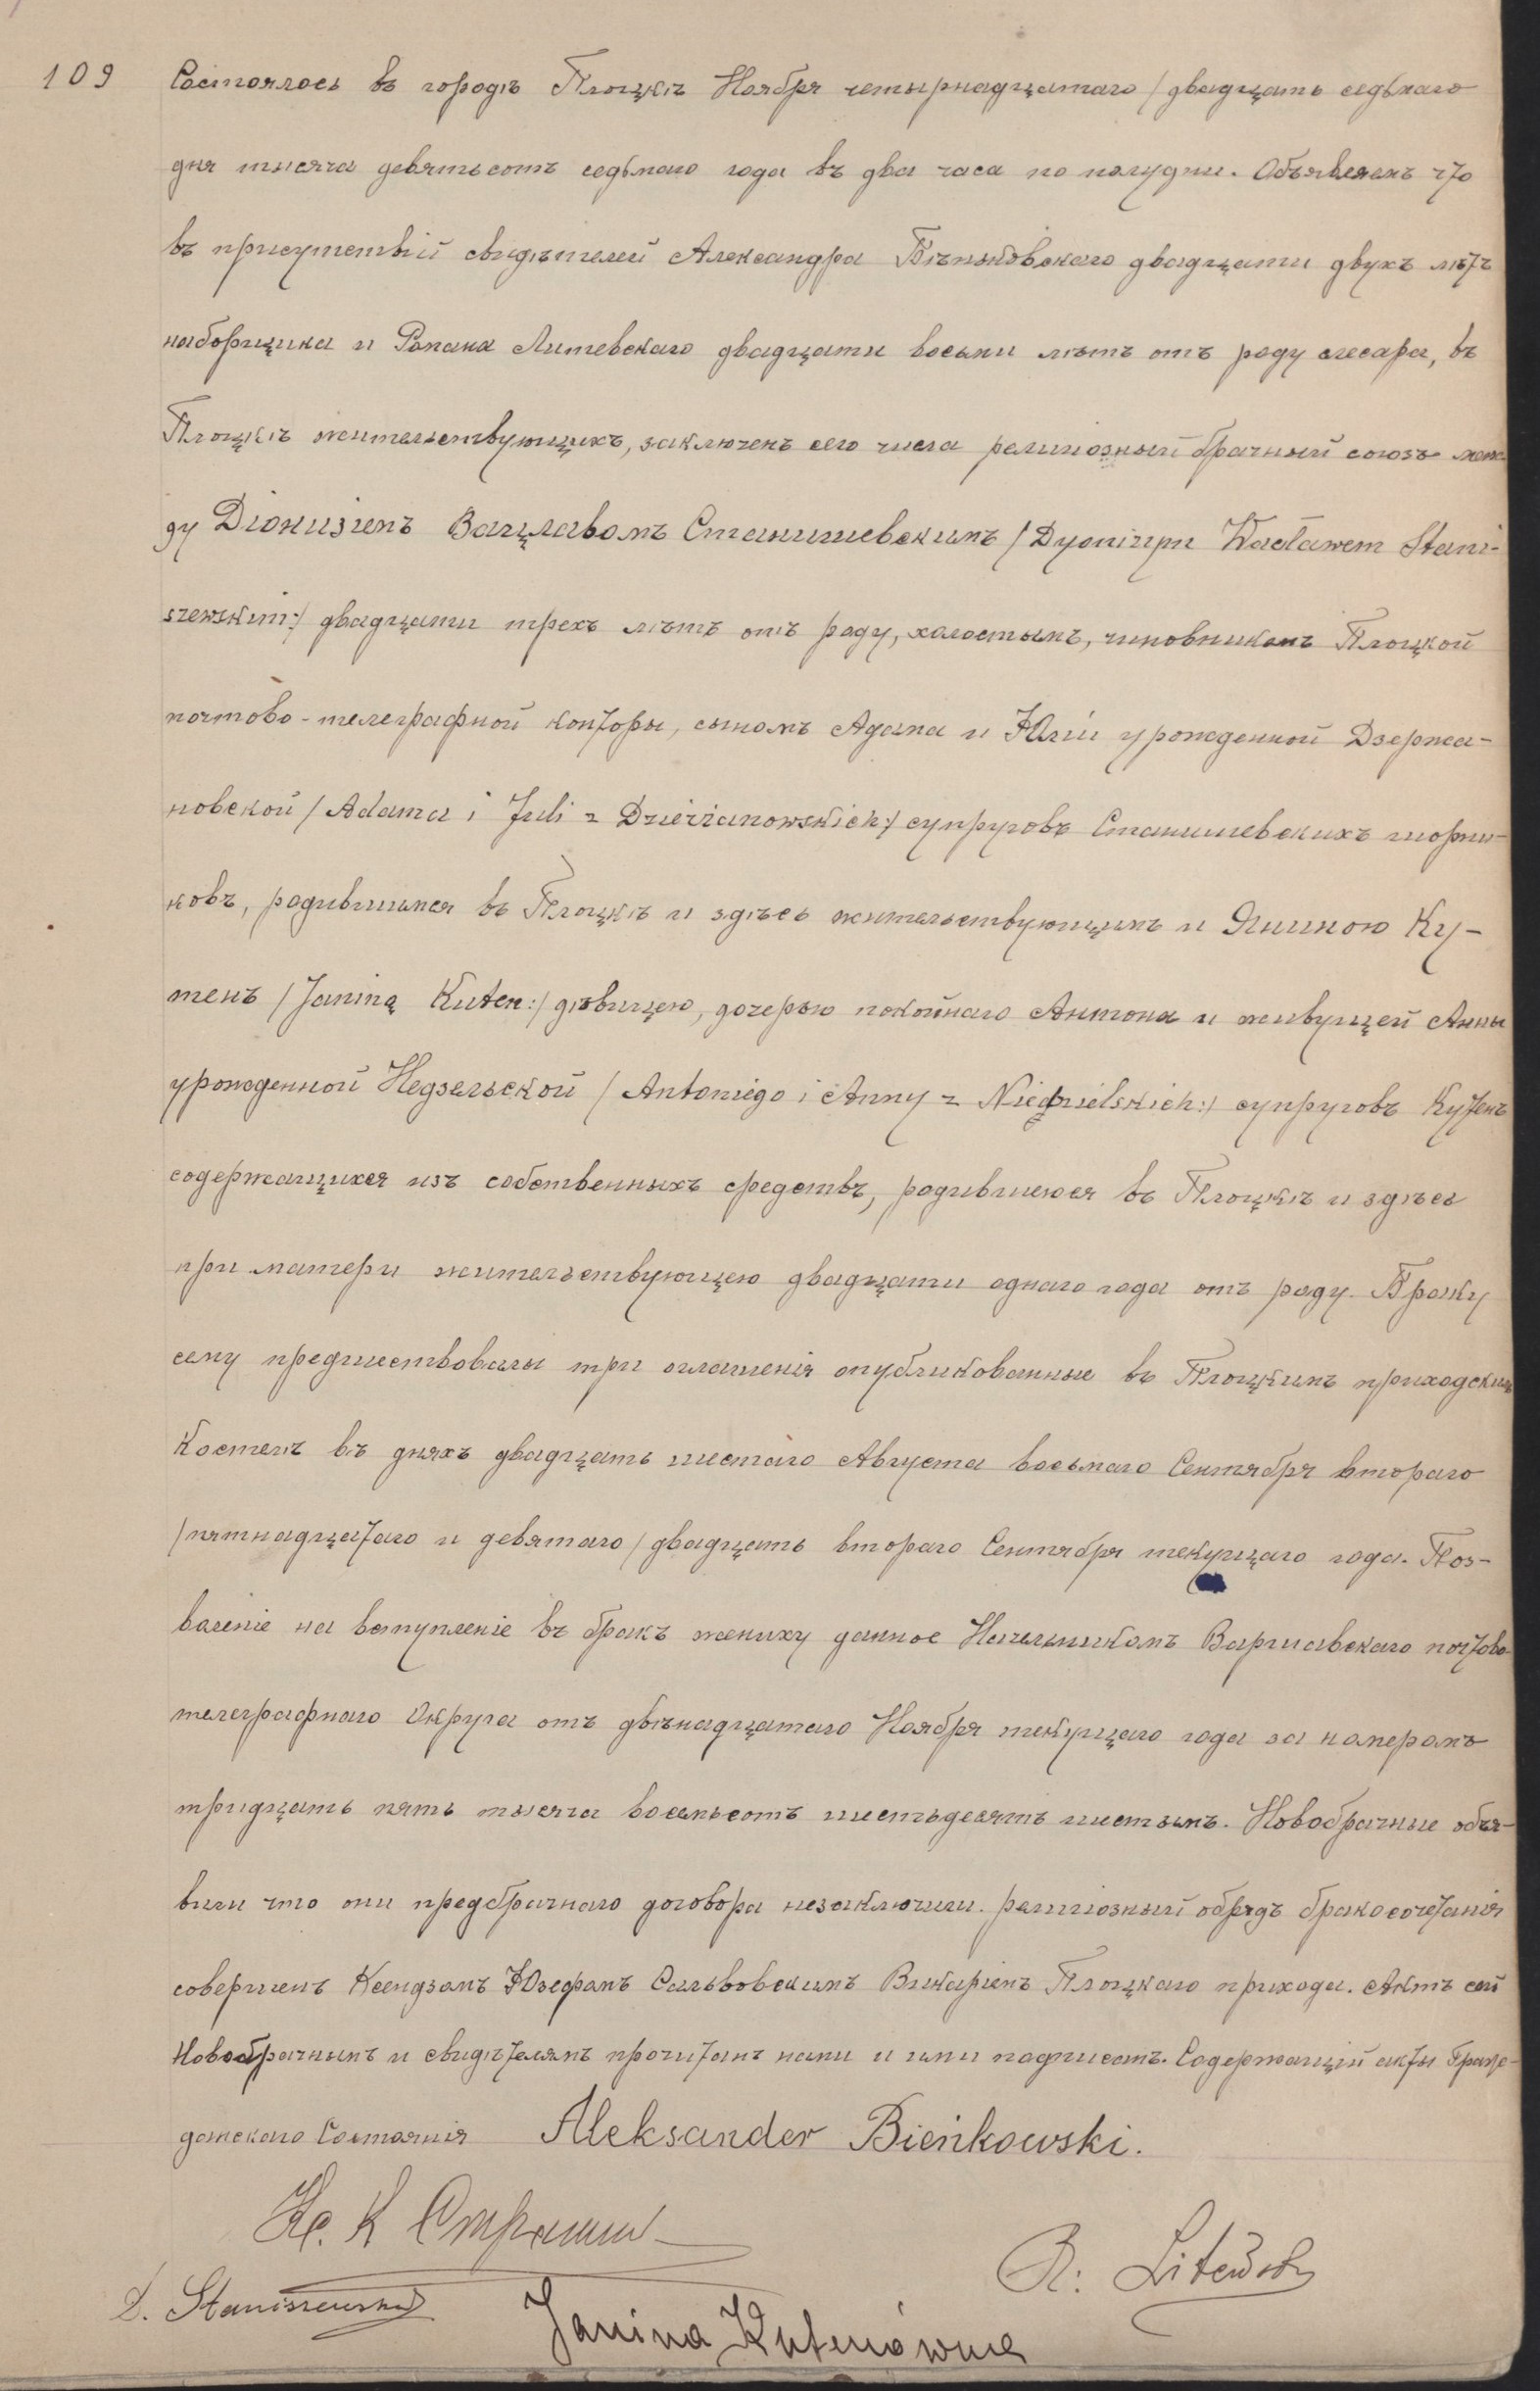 109 Состоялось въ городѣ Плоцкѣ Ноября четырнадцатаго / двадцать седьмаго
дня тысяча девятьсотъ седьмаго года въ два часа по полудни. Объявляемъ что
въ присутствіи свидѣтелей Александра Бѣньковскаго двадцати двухъ лѣтъ
наборщика и Романа Литевскаго двадцати восьми лѣтъ отъ роду слесара, въ
Плоцкѣ жительствующихъ, заключенъ сего числа религіозный брачный союзъ меж
ду Діонизіемъ Вацлавомъ Станишевскимъ / Dyonizym Wacławem Stani-
szewskim:/ двадцати трехъ лѣтъ отъ роду, холостымъ, чиновникомъ Плоцкой
почтово-телеграфной конторы, сыномъ Адама и Юліи урожденной Дзержа-
новской / Adama i Juli z Dzierżanowskich:/ супруговъ Станишевскихъ
ковъ, родившимся въ Плоцкѣ и здѣсь жительствующимъ и Яниною Ку-
тенъ / Janiną Kuten:/ дѣвицею, дочерью покойнаго Антона и живущей Анны
урожденной Недзельской / Antoniego i Anny z Niedzielskich:/ супруговъ Кутенъ
содержащихся изъ собственныхъ средствъ, родившеюся въ Плоцкѣ и здѣсь
при матери жительствующею двадцати одного года отъ роду. Браку
сему предшествовали три оглашенія опубликованные въ Плоцкимъ приходскимъ
Костелѣ въ дняхъ двадцать шестаго Августа восьмаго Сентября втораго
/ пятнадцатаго и девятаго / двадцать втораго Сентября текущаго года. Поз-
воленіе на вступленіе въ бракъ жениху данное Начальникомъ Варшавскаго почтово-
телеграфнаго Округа отъ двѣнадцатаго Ноября текущаго года за номеромъ
тридцать пять тысяча восемьсотъ шестьдесятъ шестымъ. Новобрачные объя-
вили что они предбрачнаго договора незаключили. религіозный обрядъ бракосочетанія
совершенъ Ксендзомъ Юзефомъ Сальвовскимъ Викаріемъ Плоцкаго прихода. Актъ сей
Новобрачнымъ и свидѣтелямъ прочитанъ нами и ими подписатъ. Содержащій акты Граж-
данскаго Состоянія Aleksander Bieńkowski.
Кс. К
R: Litewski
D. Staniszewski
Janina Kutenówna